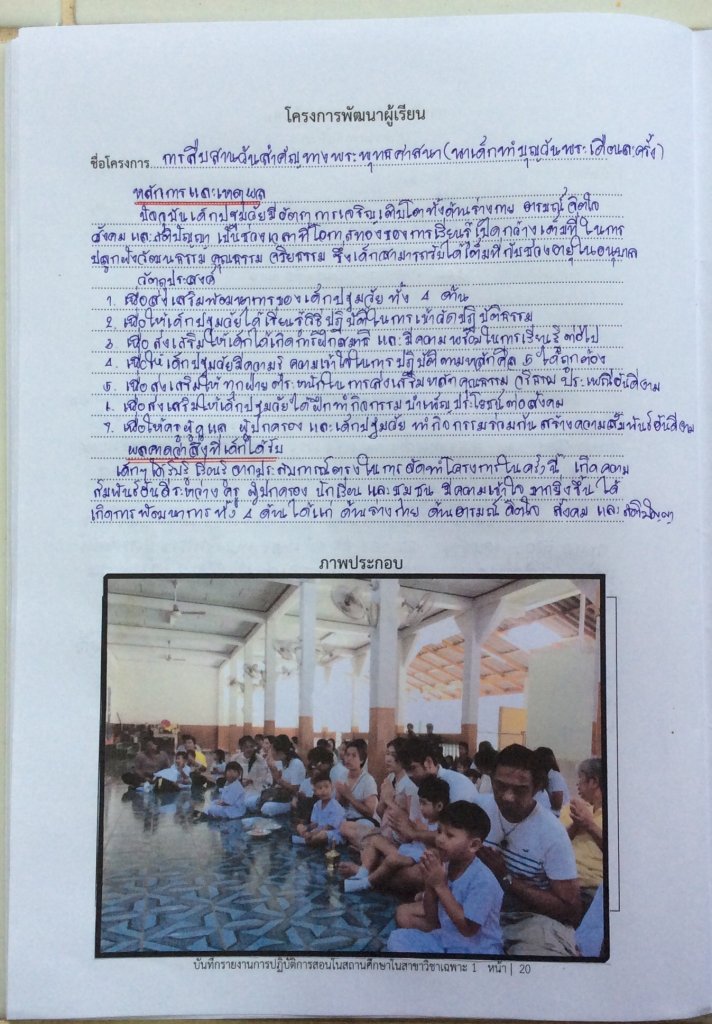 โครงการพัฒนาผู้เรียน
ชื่อโครงการ การสืบสานวันสำคัญทางพระพุทธศาสนา (พาเด็กทำบุญวันพระ เดือนละครั้ง)
หลักการและเหตุผล
ปัจจุบันเด็กปฐมวัยมีอัตราการเจริญเติบโตทั้งด้านร่างกาย อารมณ์ จิตใจ
สังคม และสติปัญญา เป็นช่วงเวลาที่โอกาสทองของการเรียนรู้ เปิดกว้างเต็มที่ ในการ
ปลูกฝังวัฒนธรรม คุณธรรม จริยธรรม ซึ่งเด็กสามารถรับได้เต็มที่กับช่วงอายุในอนุบาล
วัตถุประสงค์
1. เพื่อส่งเสริมพัฒนาการของเด็กปฐมวัย ทั้ง 4 ด้าน
2. เพื่อให้เด็กปฐมวัยได้เรียนรู้วิธีปฏิบัติในการเข้าวัดปฏิบัติธรรม
3. เพื่อส่งเสริมให้เด็กได้เกิดการฝึกสมาธิ และมีความพร้อมในการเรียนรู้ต่อไป
4. เพื่อให้เด็กปฐมวัยมีความรู้ ความเข้าใจในการปฏิบัติตามหลักศีล 5 ได้ถูกต้อง
5. เพื่อส่งเสริมให้ทุกฝ่ายตระหนักในการส่งเสริมหลักคุณธรรม จริธรรม ประเพณีอันดีงาม
6. เพื่อส่งเสริมให้เด็กปฐมวัยได้ฝึกทำกิจกรรมบำเพ็ญประโยชน์ต่อสังคม
7. เพื่อให้ครูผู้ดูแล ผู้ปกครอง และเด็กปฐมวัย ทำกิจกรรมร่วมกัน สร้างความสัมพันธ์อันดีงาม
ผลคาดว่าสิ่งที่เด็กได้รับ
เด็กๆ ได้รับรู้ เรียนรู้ จากประสบการณ์ตรงในการจัดทำโครงการในครั้งนี้ เกิดความ
สัมพันธ์อันดีระหว่าง ครู ผู้ปกครอง นักเรียน และชุมชน มีความเข้าใจ มากยิ่งขึ้น ได้
เกิดการพัฒนาการ ทั้ง 4 ด้าน ได้แก่ ด้านร่างกาย ด้านอารมณ์ จิตใจ สังคม และสติปัญญา
ภาพประกอบ
บันทึกรายงานการปฏิบัติการสอนในสถานศึกษาในสาขาวิชาเฉพาะ 1 หน้า | 20